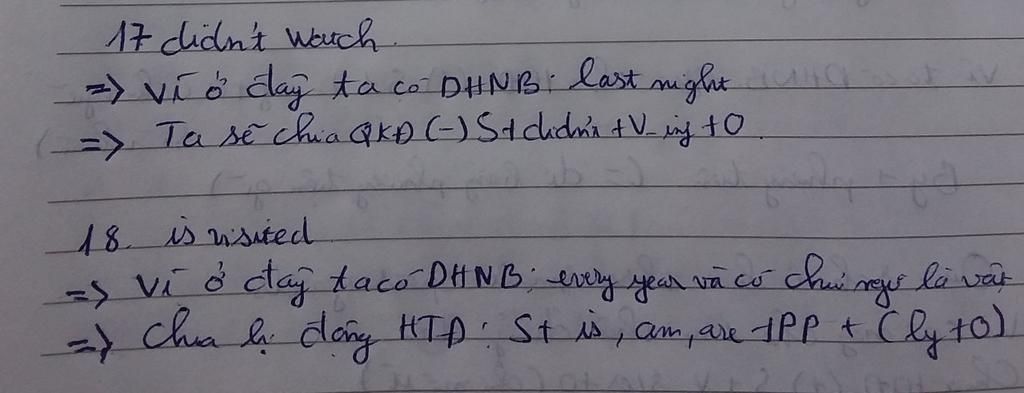 17 didn't watch.
=> Vì ở đây ta có DHNB: last night
=> Ta sẽ chia QKĐ (-) S+didn't +V-inf +O.
18. is visited
=> Vì ở đây ta có DHNB: every year và có chủ ngữ là vật
=> Chia bị động HTĐ: S+ is, am, are +PP + (by +O)